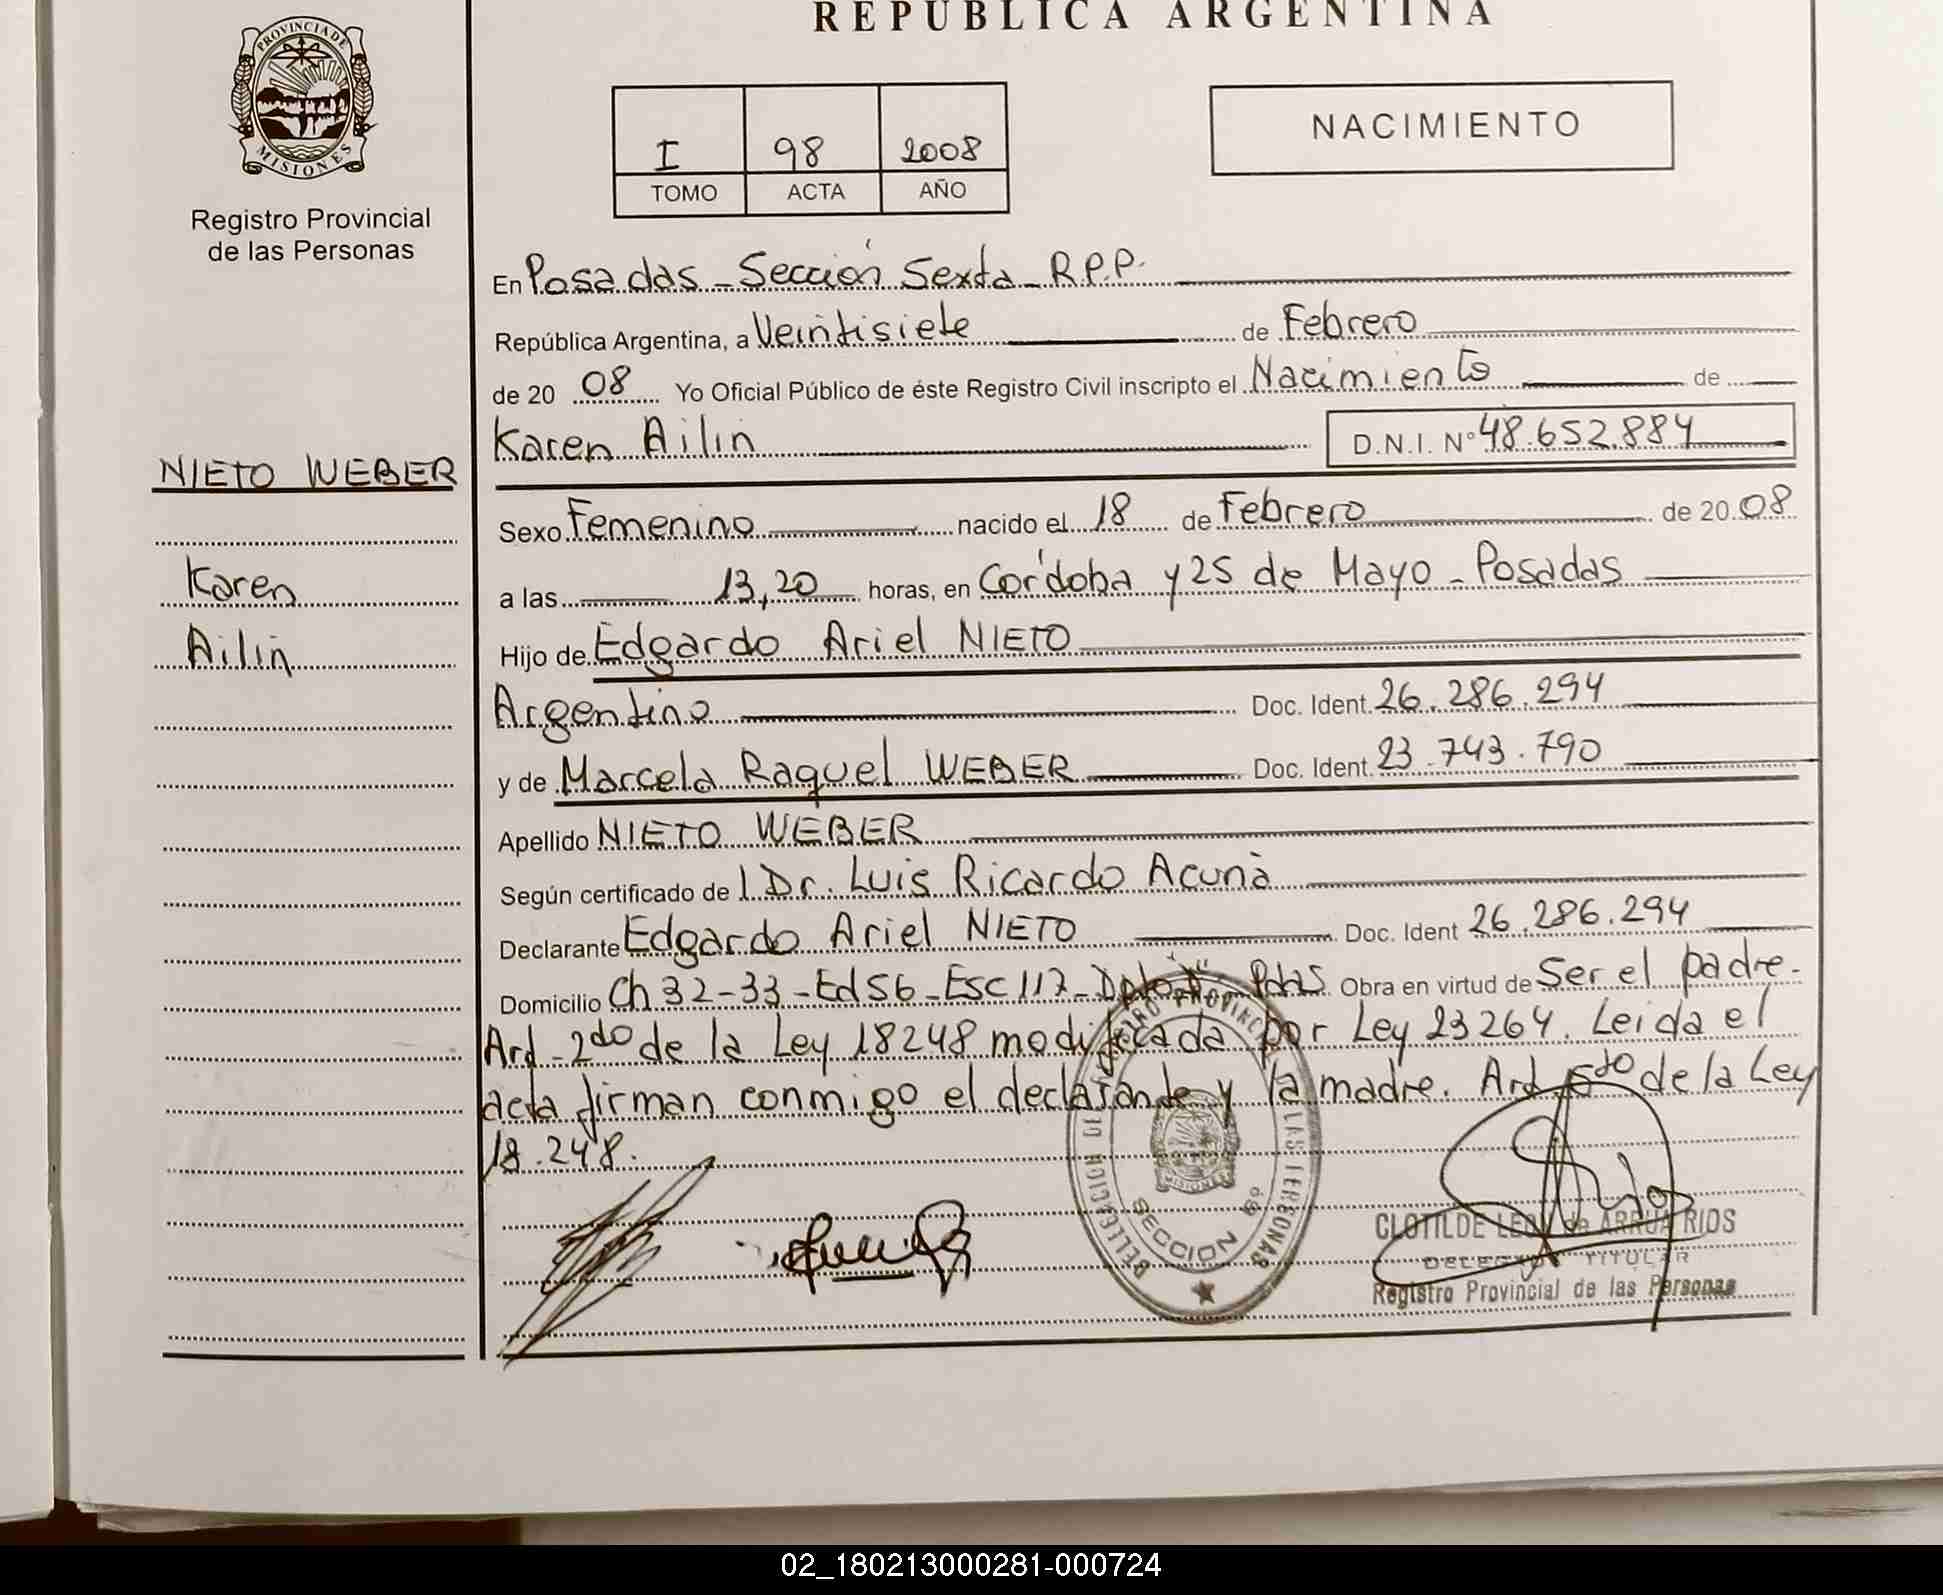 REPUBLICA ARGENTINA
PROVINCIA DE
MISIONES
Registro Provincial
de las Personas
I 98 2008
TOMO ACTA AÑO
NACIMIENTO
En Posadas - Sección Sexta - R.P.P.
República Argentina, a Veintisiete de Febrero
de 20 08 Yo Oficial Público de éste Registro Civil inscripto el Nacimiento de
Karen Ailin D.N.I. N° 48.652.884
NIETO WEBER
Karen
Ailin
Sexo Femenino nacido el 18 de Febrero de 20 08
a las 13,20 horas, en Córdoba y 25 de Mayo - Posadas
Hijo de Edgardo Ariel NIETO
Argentino Doc. Ident. 26.286.294
y de Marcela Raquel WEBER Doc. Ident. 23.743.790
Apellido NIETO WEBER
Según certificado de l Dr. Luis Ricardo Acuña
Declarante Edgardo Ariel NIETO Doc. Ident 26.286.294
Domicilio Ch 32-33-Ed 56-Esc 117- Pdas Obra en virtud de Ser el padre.
Art. 2do de la Ley 18248 modificada por Ley 23264. Leida el
acta firman conmigo el declarante y la madre. Art 5to de la Ley
18.248.
SECCION 6ª
MISIONES
CLOTILDE LEON de ARRUA RIOS
DELEGADA TITULAR
Registro Provincial de las Personas
02_180213000281-000724